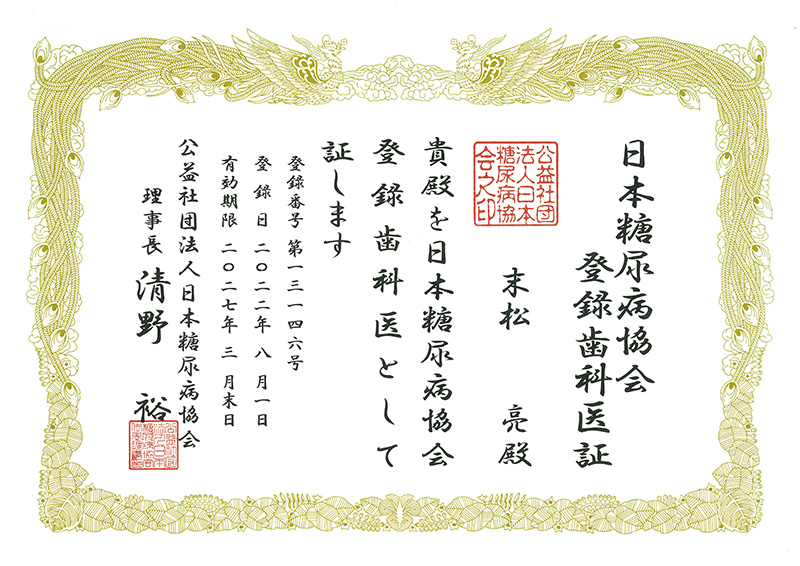 日本糖尿病協会
登録歯科医証
公益社団
法人日本
糖尿病協
会之印
末松 亮殿
貴殿を日本糖尿病協会
登録歯科医として
証します
登録番号 第一三一四六号
登録日 二〇二二年 八月一日
有効期限 二〇二七年 三月末日
公益社団法人日本糖尿病協会
理事長 清野 裕